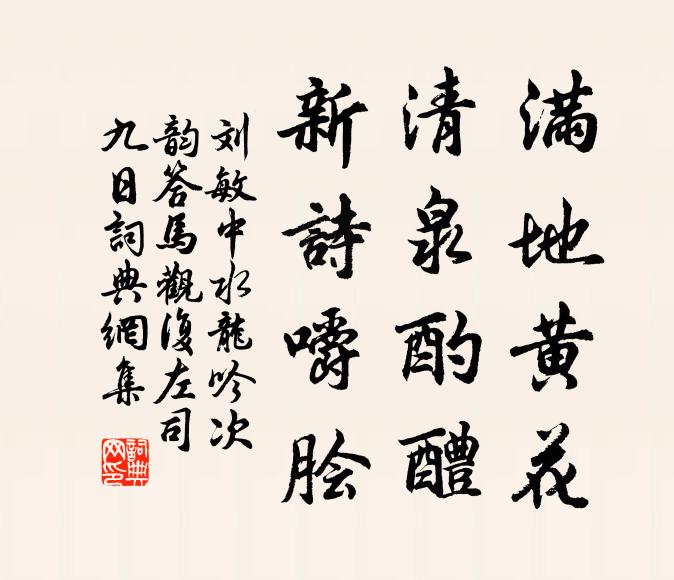 满地黄花
清泉酌醴
新詩嚼脍
刘敏中水龍吟次
韵答馬觀復左司
九日詞典網集
詞典網印